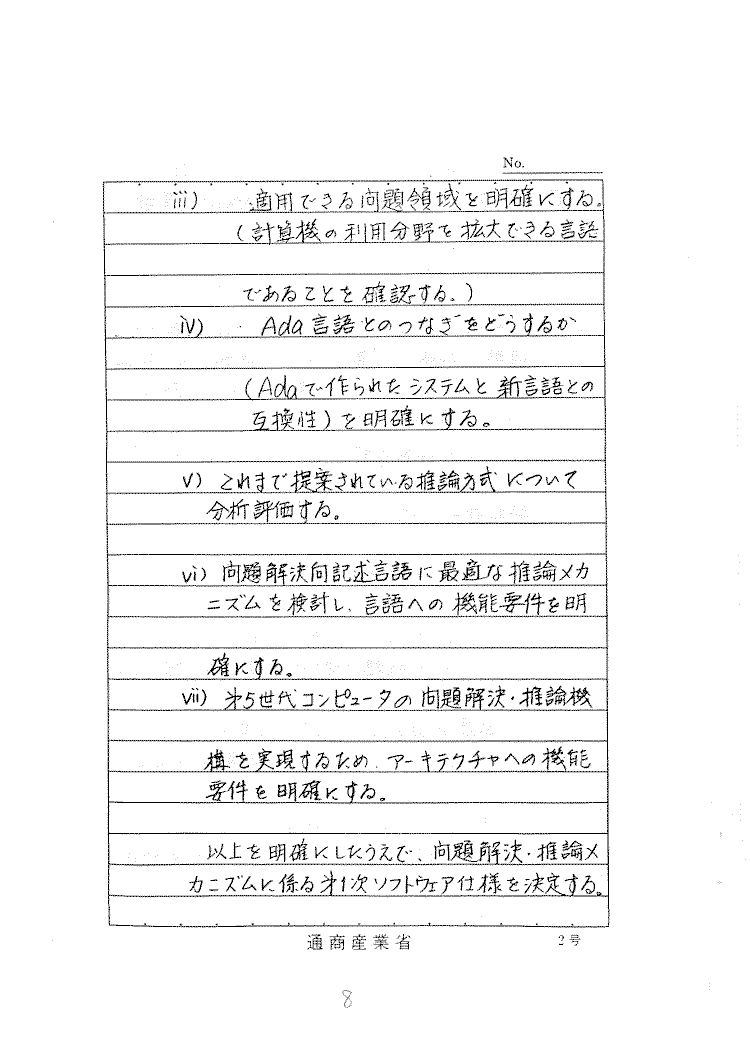 No.
iii) 適用できる問題領域を明確にする。
(計算機の利用分野を拡大できる言語
であることを確認する。)
iv) Ada言語とのつなぎをどうするか
(Adaで作られたシステムと新言語との
互換性)を明確にする。
v) これまで提案されている推論方式について
分析評価する。
vi) 問題解決向記述言語に最適な推論メカ
ニズムを検討し、言語への機能要件を明
確にする。
vii) 第5世代コンピュータの問題解決・推論機
構を実現するため、アーキテクチャへの機能
要件を明確にする。
以上を明確にしたうえで、問題解決・推論メ
カニズムに係る第1次ソフトウェア仕様を決定する。
通商産業省 2号
8